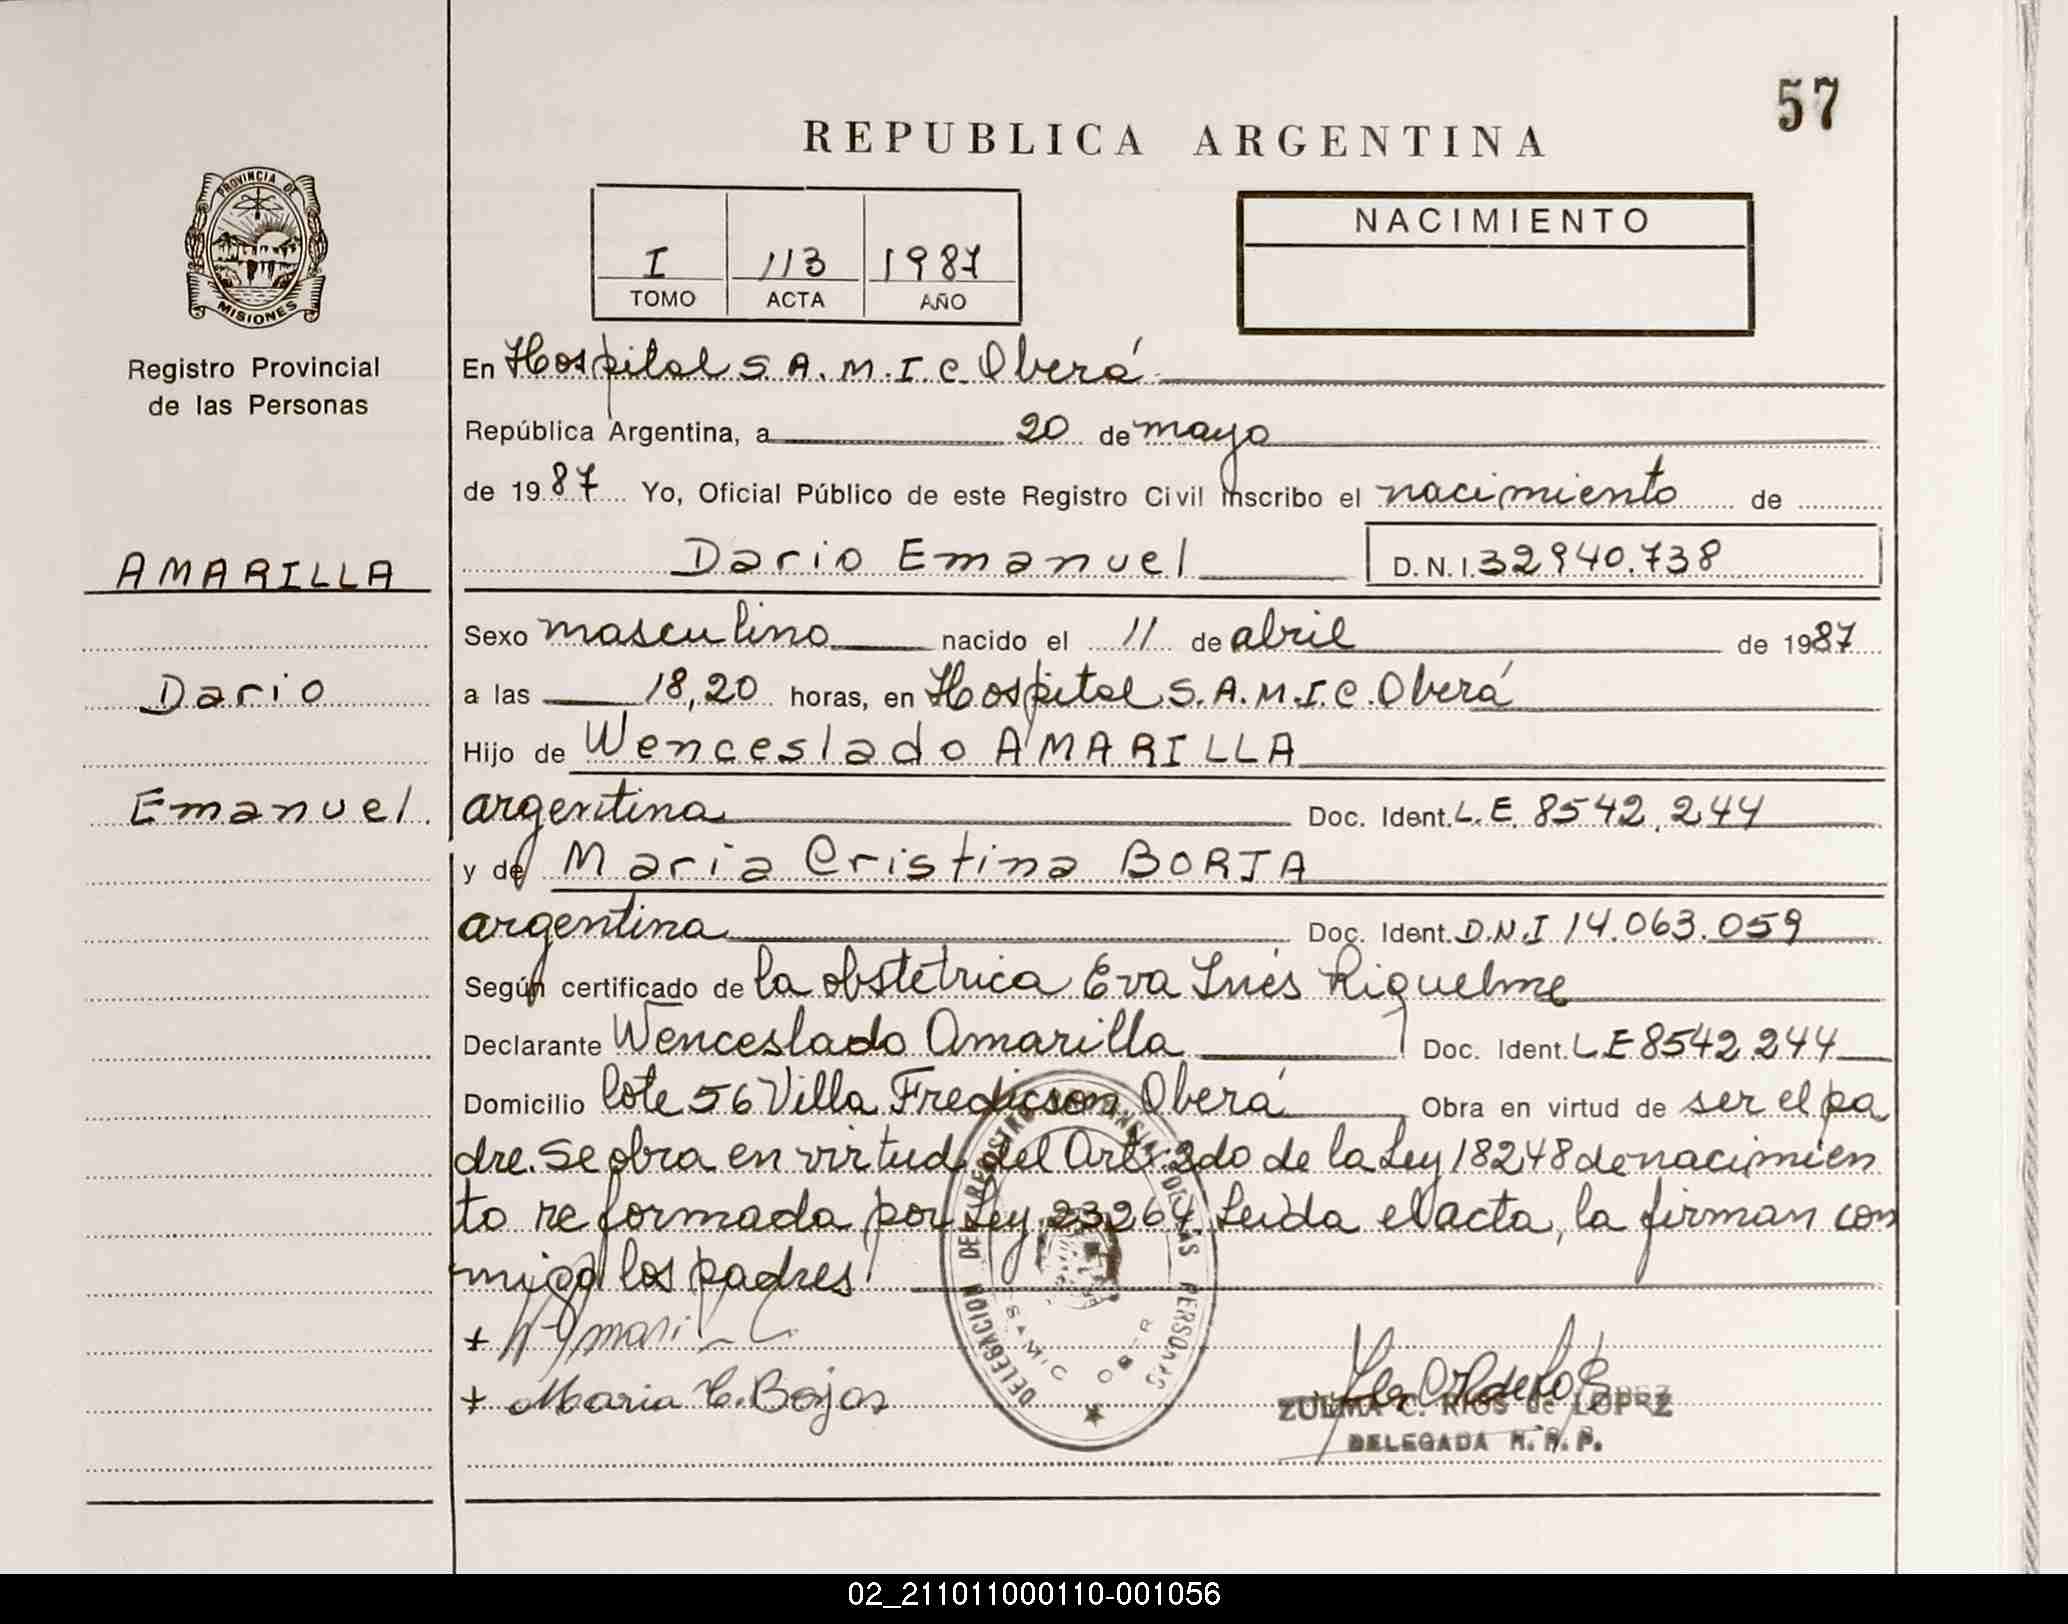 57
REPUBLICA ARGENTINA
PROVINCIA DE
MISIONES
Registro Provincial
de las Personas
I 113 1987
TOMO ACTA AÑO
NACIMIENTO
En Hospital S.A.M.I.C. Oberá
República Argentina, a 20 de mayo
de 1987 Yo, Oficial Público de este Registro Civil Inscribo el nacimiento de
AMARILLA
Dario
Emanuel.
Dario Emanuel D.N.I. 32940.738
Sexo masculino nacido el 11 de abril de 1987
a las 18,20 horas, en Hospital S.A.M.I.C. Oberá
Hijo de Wenceslado AMARILLA
argentina Doc. Ident. L.E. 8542.244
y de Maria Cristina BORJA
argentina Doc. Ident. D.N.I 14.063.059
Según certificado de la obstetrica Eva Inés Riquelme
Declarante Wenceslado Amarilla Doc. Ident. L.E 8542.244
Domicilio lote 56 Villa Fredicson Oberá Obra en virtud de ser el pa
dre. Se obra en virtud del Art: 2do de la Ley 18248 de nacimien
to reformada por Ley 23264. Leida el acta, la firman con
migo los padres.
DELEGACION DEL REGISTRO PROVINCIAL DE LAS PERSONAS
SAMIC OBER
+
+ Maria C. Bojas
ZULMA C. RIOS de LOPEZ
DELEGADA R.P.
02_211011000110-001056